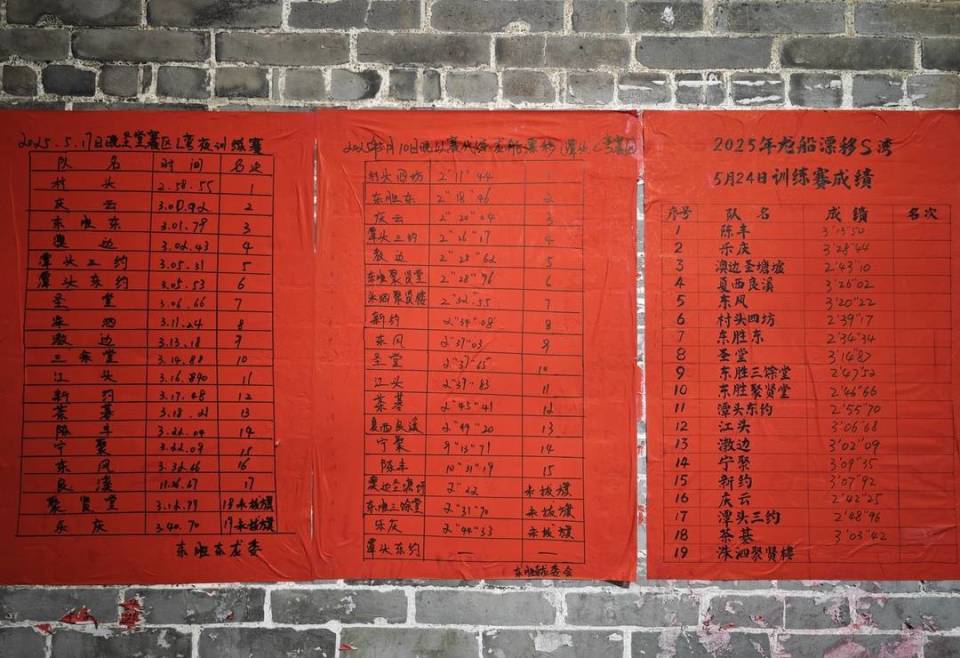 2025.5.17日晚圣堂赛区L湾夜训练赛
队名 时间 名次
村头 2.58.55 1
庆云 3.00.92 2
东胜东 3.01.79 3
澳边 3.02.43 4
潭头三约 3.05.31 5
潭头东约 3.05.53 6
圣堂 3.06.66 7
洙泗 3.11.24 8
漖边 3.13.18 9
三馀堂 3.14.88 10
江头 3.16.890 11
新约 3.17.48 12
茶基 3.18.21 13
陈丰 3.22.04 14
宁聚 3.22.09 15
东风 3.32.66 16
良溪 11.26.67 17
聚贤堂 3.12.99 18未拔旗
乐庆 3.40.70 19未拔旗
东胜东龙委
村头四坊 2"11"44
东胜东 2"18"46 2
庆云 2"20"04 3
潭头三约 2"26"17 4
漖边 2"28"62 5
东胜聚贤堂 2"28"96 6
洙泗聚贤楼 2"32"55 7
新约 2"34"08 8
东风 2"37"03 9
圣堂 2"37"65 10
江头 2"39"83 11
茶基 2"45"41 12
夏西良溪 2"49"20 13
宁聚 9"13"71 14
陈丰 10"31"19 15
澳边圣塘坊 未拔旗
东胜三馀堂 2"31"70 未拔旗
乐庆 2"44"33 未拔旗
潭头东约 — —
东胜龙委会
2025年龙船漂移S湾
5月24日训练赛成绩
序号 队名 成绩 名次
1 陈丰 3'13"50
2 乐庆 3'28"44
3 澳边圣塘坡 2'43"10
4 夏西良溪 3'26"02
5 东风 3'20"22
6 村头四坊 2'39"17
7 东胜东 2'34"34
8 圣堂 3'14"87
9 东胜三馀堂 2'47"52
10 东胜聚贤堂 2'46"66
11 潭头东约 2'55"70
12 江头 3'06"68
13 漖边 3'02"09
14 宁聚 3'09"35
15 新约 3'07"92
16 庆云 2'42"25
17 潭头三约 2'48"96
18 茶基 3'03"42
19 洙泗聚贤楼